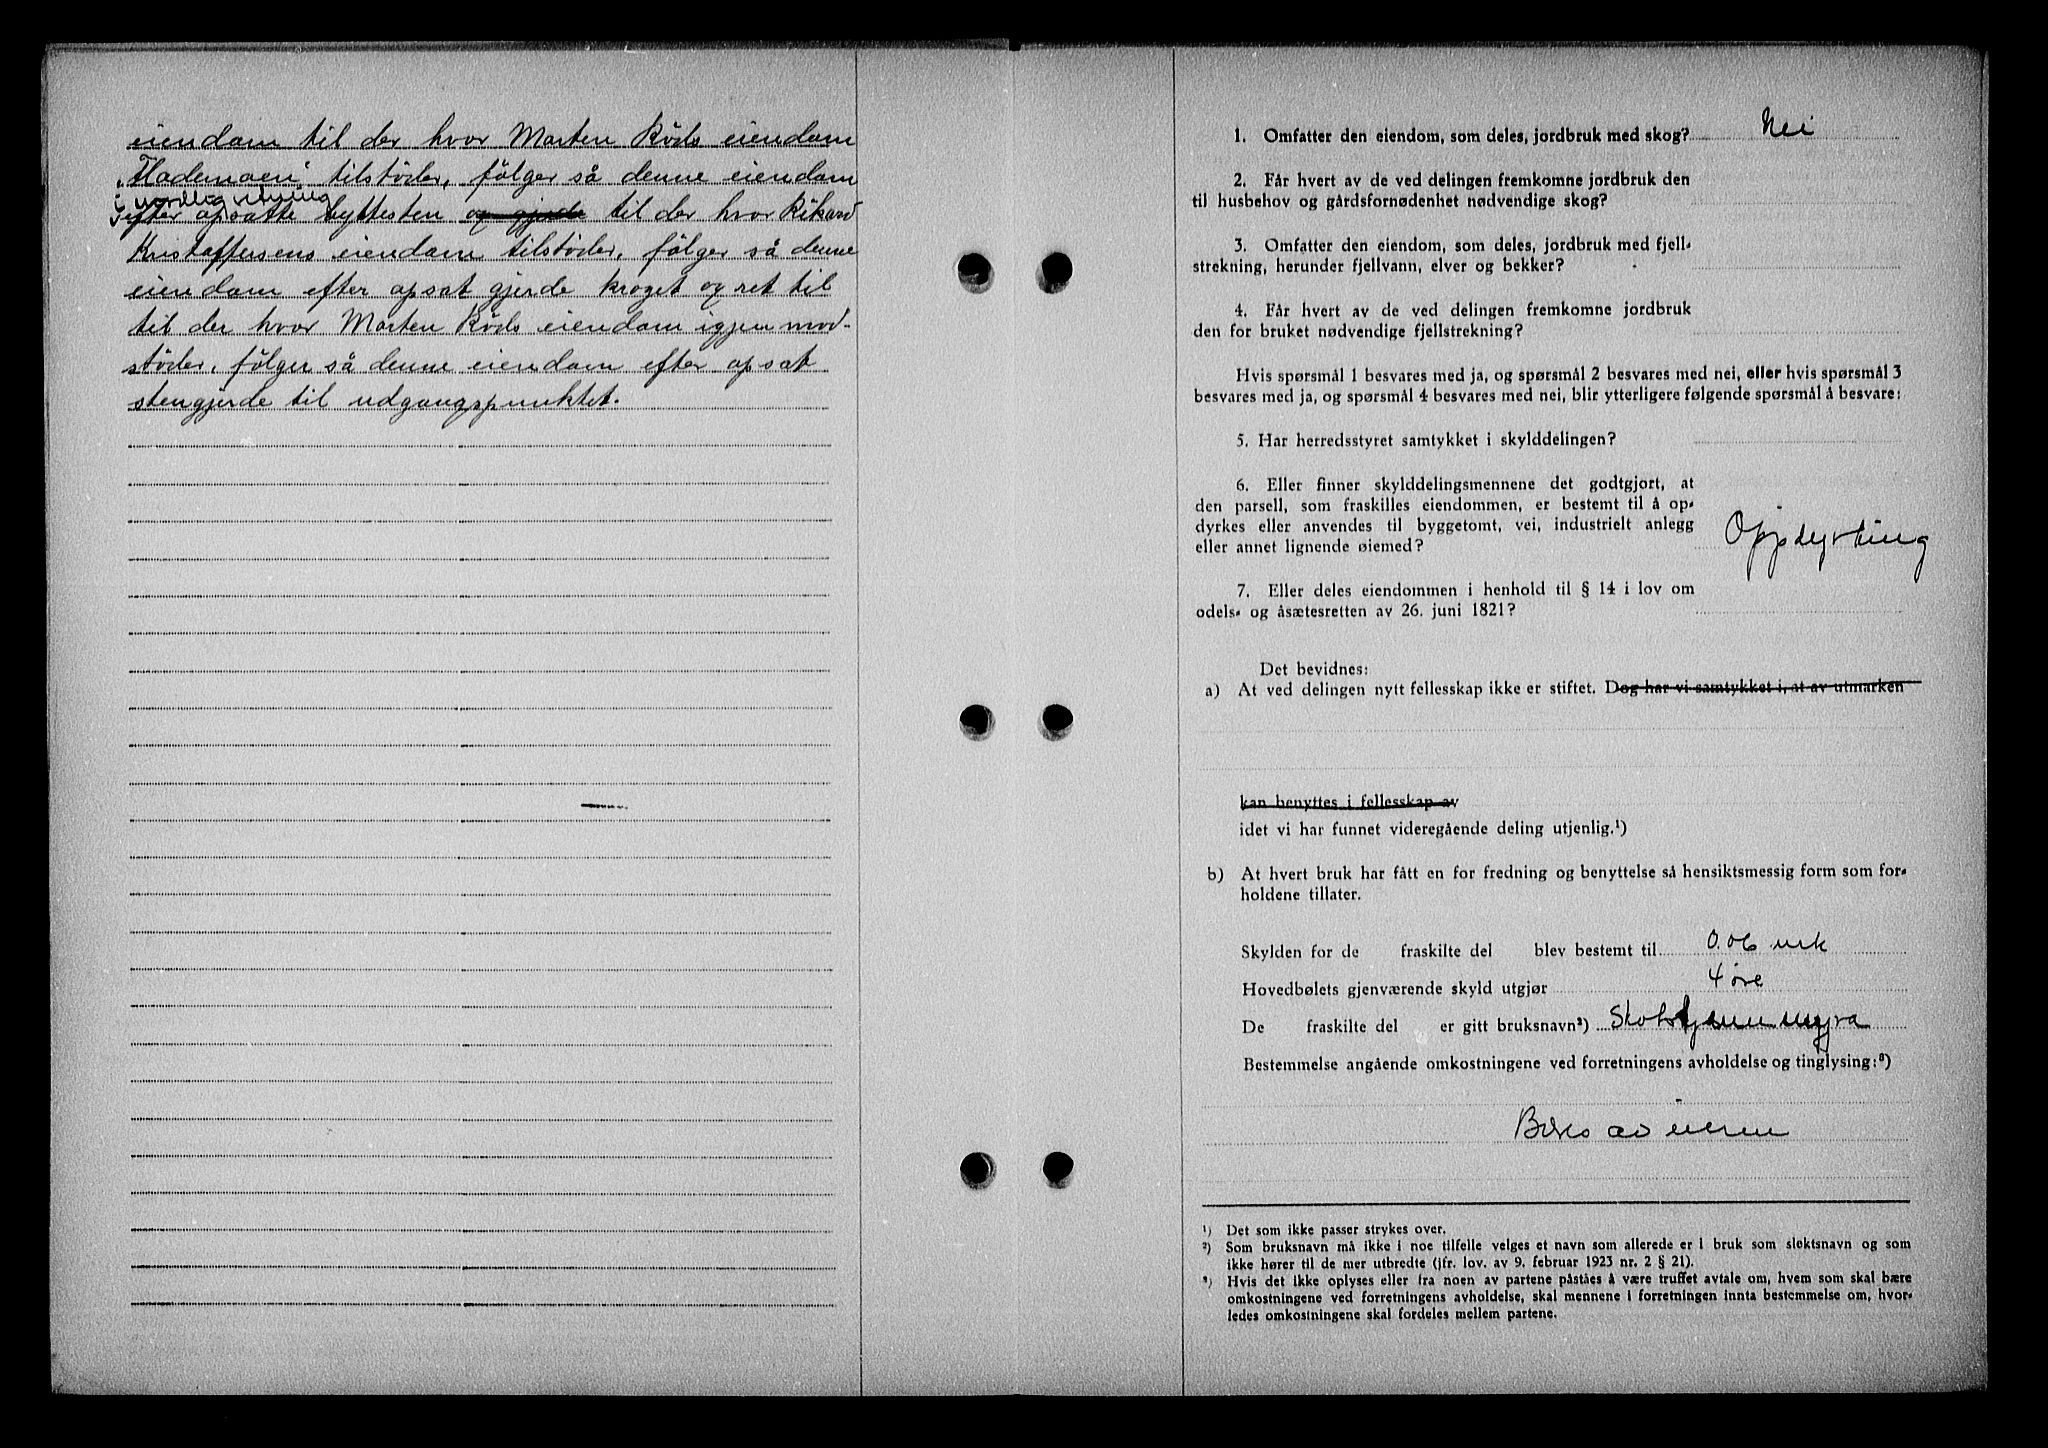 eiendom til der hvor Morten Röds eiendom
„Flademoen" tilstøder, følger så denne eiendom
i nordlig retning
efter opsatte byttesten og gjerde til der hvor Rikard
Kristoffersens eiendom tilstøder, følger så denne
eiendom efter opsat gjerde kroget og ret til
til der hvor Morten Röds eiendom igjen mod-
støder, følger så denne eiendom efter opsat
stengjerde til udgangspunktet.
1. Omfatter den eiendom, som deles, jordbruk med skog? Nei
2. Får hvert av de ved delingen fremkomne jordbruk den
til husbehov og gårdsfornødenhet nødvendige skog?
3. Omfatter den eiendom, som deles, jordbruk med fjell-
strekning, herunder fjellvann, elver og bekker?
4. Får hvert av de ved delingen fremkomne jordbruk
den for bruket nødvendige fjellstrekning?
Hvis spørsmål 1 besvares med ja, og spørsmål 2 besvares med nei, eller hvis spørsmål 3
besvares med ja, og spørsmål 4 besvares med nei, blir ytterligere følgende spørsmål å besvare:
5. Har herredsstyret samtykket i skylddelingen?
6. Eller finner skylddelingsmennene det godtgjort, at
den parsell, som fraskilles eiendommen, er bestemt til å op-
dyrkes eller anvendes til byggetomt, vei, industrielt anlegg
eller annet lignende øiemed? Oppdyrking
7. Eller deles eiendommen i henhold til § 14 i lov om
odels- og åsætesretten av 26. juni 1821?
Det bevidnes:
a) At ved delingen nytt fellesskap ikke er stiftet. Dog har vi samtykket i, at av utmarken
kan benyttes i fellesskap av
idet vi har funnet videregående deling utjenlig.¹)
b) At hvert bruk har fått en for fredning og benyttelse så hensiktsmessig form som for-
holdene tillater.
Skylden for de fraskilte del blev bestemt til 0.06 mrk
Hovedbølets gjenværende skyld utgjør 4 øre
De fraskilte del er gitt bruksnavn²)
Bestemmelse angående omkostningene ved forretningens avholdelse og tinglysing:³)
Bæres av eieren
¹) Det som ikke passer strykes over.
²) Som bruksnavn må ikke i noe tilfelle velges et navn som allerede er i bruk som slektsnavn og som
ikke hører til de mer utbredte (jfr. lov. av 9. februar 1923 nr. 2 § 21).
³) Hvis det ikke oplyses eller fra noen av partene påståes å være truffet avtale om, hvem som skal bære
omkostningene ved forretningens avholdelse, skal mennene i forretningen innta bestemmelse om, hvor-
ledes omkostningene skal fordeles mellem partene.